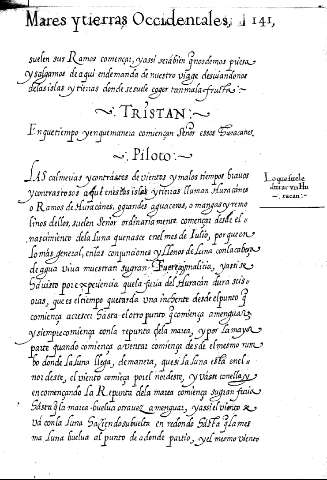 Mares y tierras Occidentales, 141,
suelen sus Ramos començar, yassi sera bien q̃ nos demos priesa
y salgamos de aqui en demanda de nuestro viage desuiandonos
de las islas y tierras donde se suele coger tan mala fruta:~
~: TRISTAN:~
En que tiempo y en que manera comiençan Señor essos Huracanes
~: Piloto:~
LAS calmerias y contrastes de vientos y malos tiempos brauos
y contrastosos a q̃ en estas islas y tierras llaman Huracanes
Lo que suele
durar vn Hu
~, racan:~
o Ramos de Huracanes, o grandes aguaceros, o mangas y remo
linos dellos, suelen Señor ordinariamente començar desde el
nascimiento dela Luna que nasce en el mes de Iulio, porque en
Lo mas general, en las conjunciones y Llenos de Luna con la cabeça
de agua viua muestran su gran Fuerça y malicia, yassi se
Ha visto por experiencia que la furia del Huracan dura seis o
ocas, que es el tiempo que tarda Vna Inchente desde el punto q̃
comiença a crecer Hasta el otro punto q̃ comiença a menguar,
y siempre comiença con la repunta dela marea, y por la mayor
parte quando comiença a ventar comiença desde el mesmo rum
bo donde la luna llega, de manera, que si la luna està en el
nordeste, el viento comiença por el nordeste, y vase con ella, y
en començando la Repunta dela marea comiença su gran furia
Hasta q̃ la marea buelua otra vez a menguar, yassi el viento se
va con la luna Haziendo su buelta en redondo Hasta q̃ la mes
ma luna buelua al punto de adonde partio, y el mesmo viento